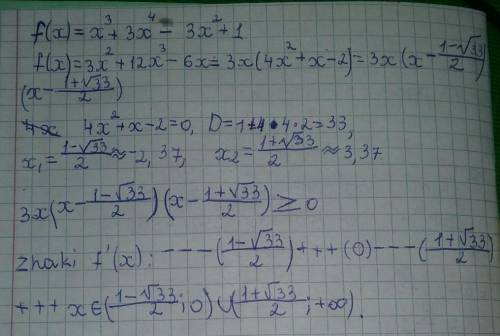 f(x) = x³ + 3x⁴ - 3x² + 1
f(x) = 3x² + 12x³ - 6x = 3x(4x² + x - 2) = 3x(x - (1-√33)/2)
(x - (1+√33)/2)
4x² + x - 2 = 0, D = 1+4·4·2=33,
x₁ = (1-√33)/2 ≈ -2,37, x₂ = (1+√33)/2 ≈ 3,37
3x(x - (1-√33)/2)(x - (1+√33)/2) ≥ 0
znaki f'(x): ---((1-√33)/2)+++(0)---((1+√33)/2)
+++ x∈((1-√33)/2; 0)∪((1+√33)/2; +∞).